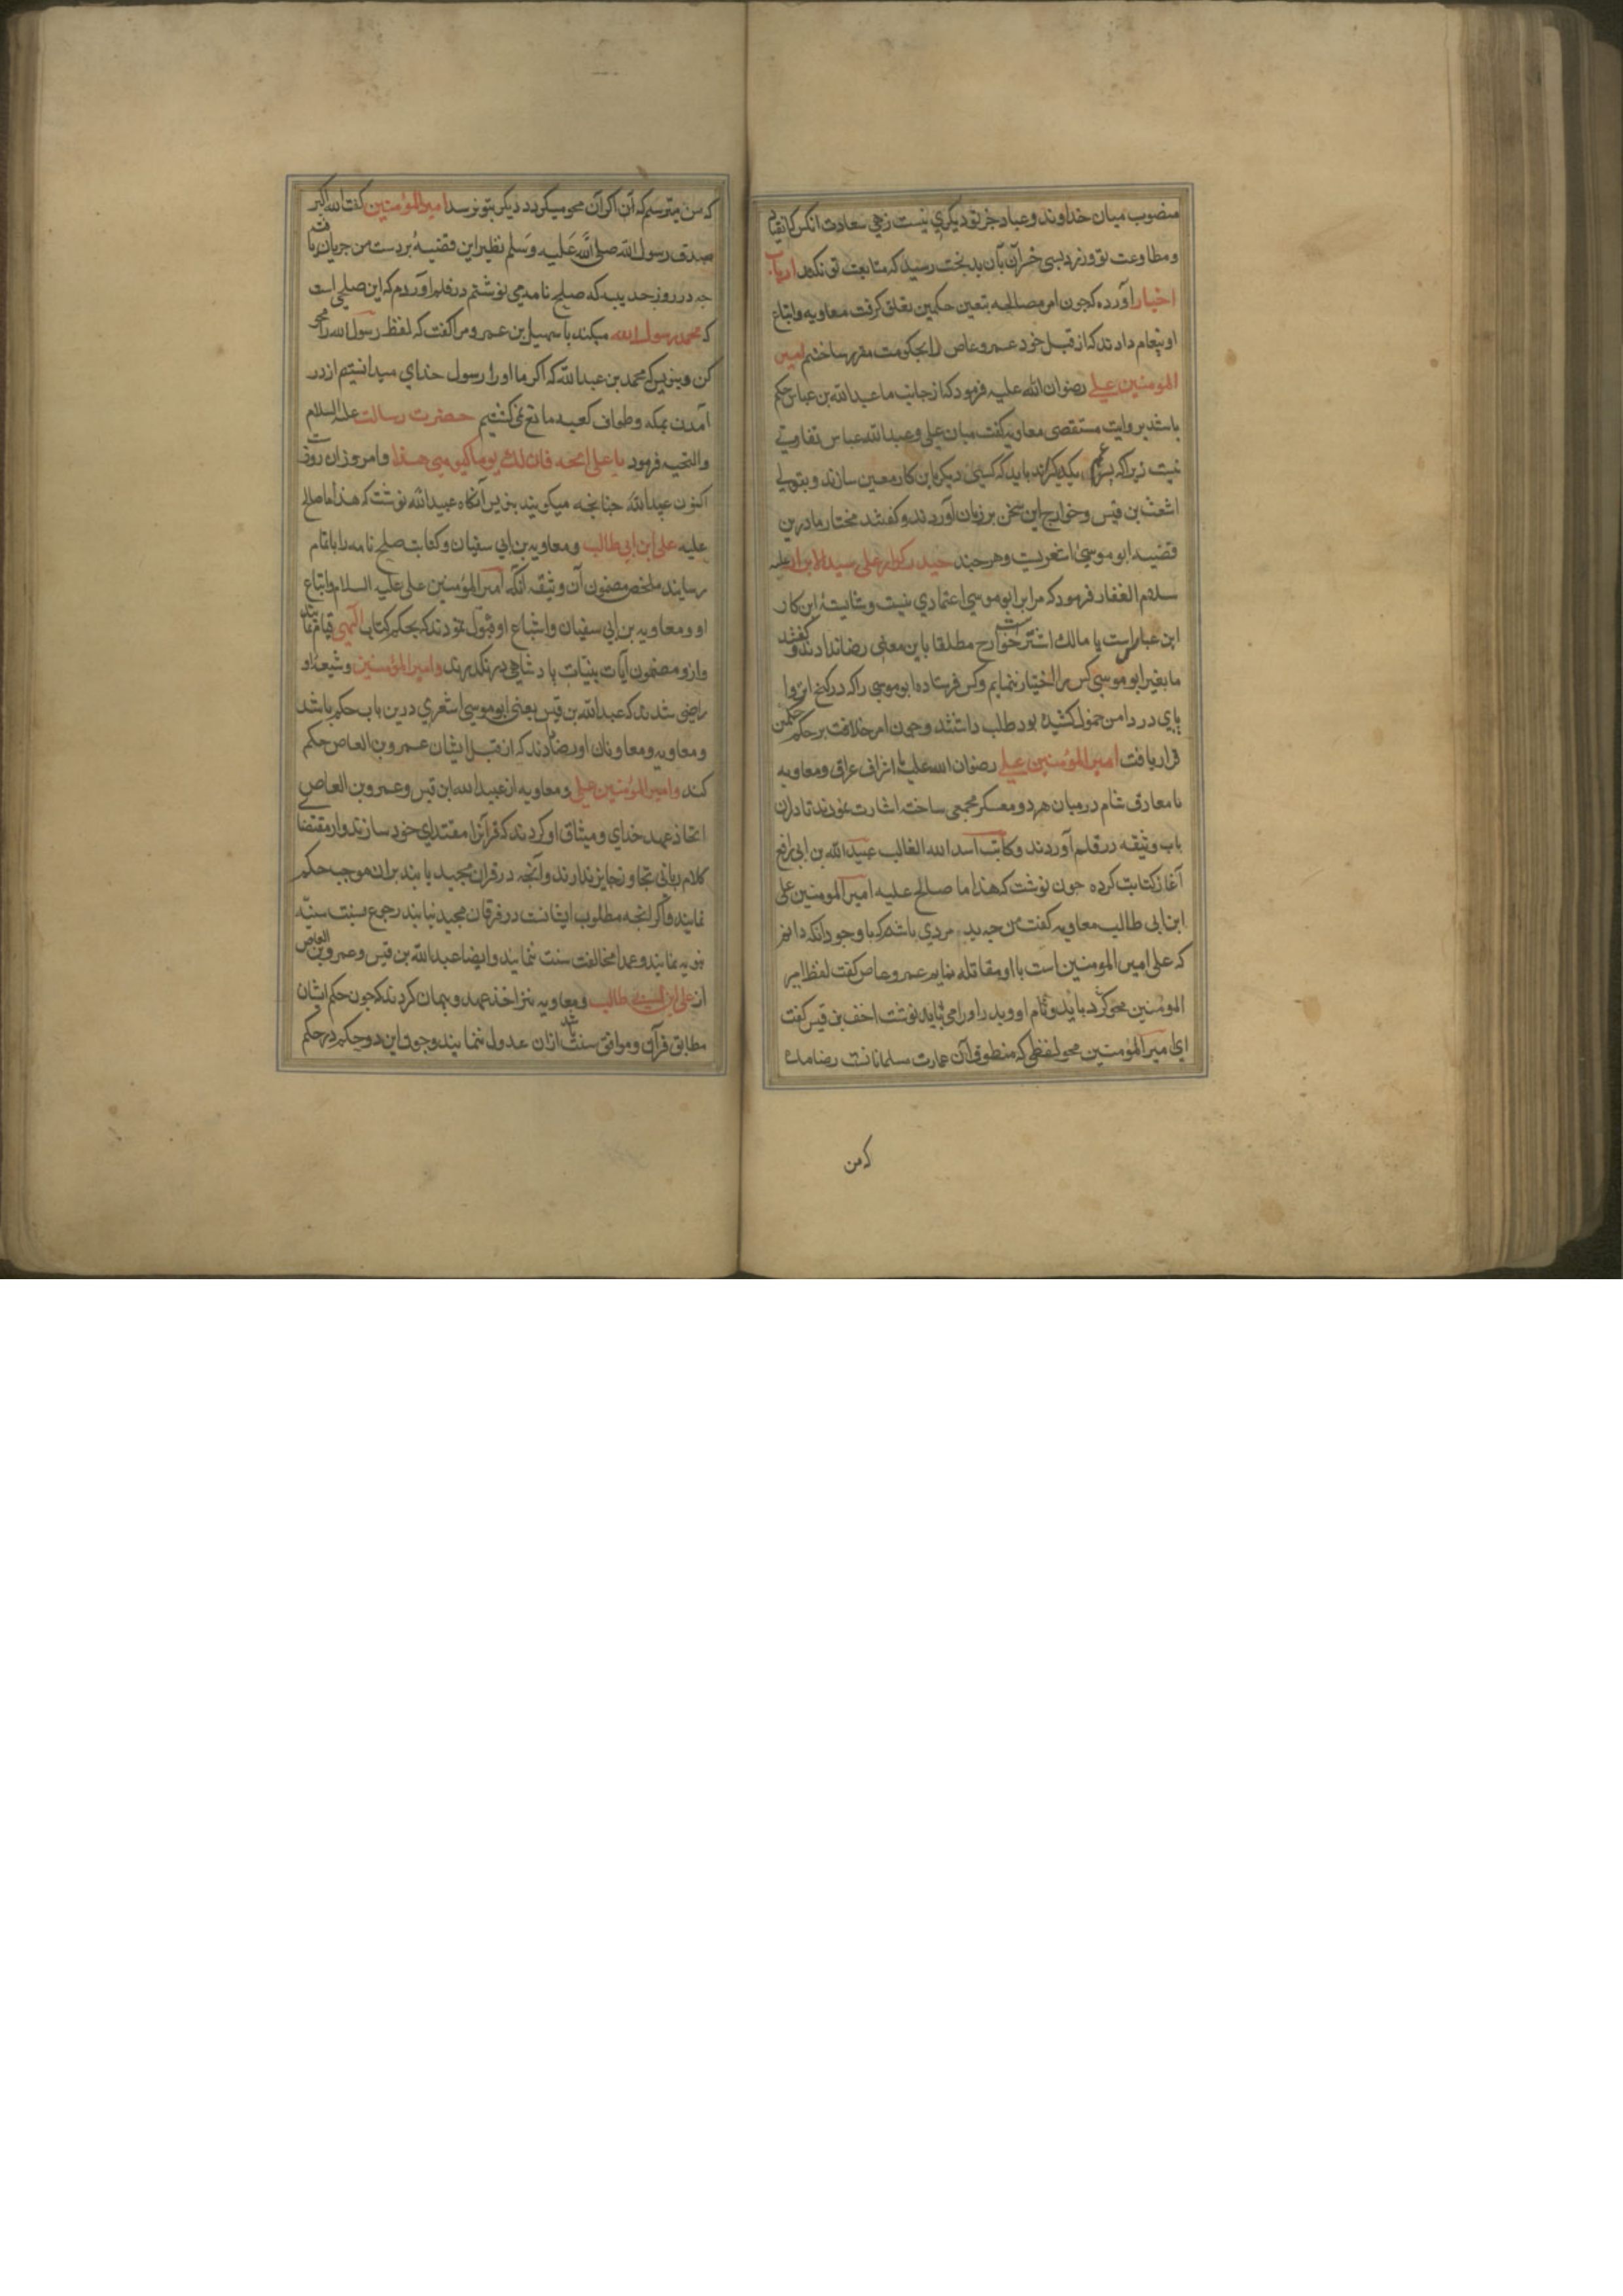 منصوب میان خداوند و عباد جز تو دیکری نیست زهی سعادت انکس که انقیاد
و مطاوعت تو ورزد بسی خسران بآن بدبخت رسید که متابعت تو نکند ارباب
اخبار آورده که جون امر مصالحه بتعین حکمین تعلق کرفت معاویه و اتباع
او پیغام دادند که از قبل خود عمرو عاص را بحکومت مقرر ساختیم امیر
المومنین علی رضوان الله علیه فرمود که از جانب ما عبدالله بن عباس حکم
باشد بروایت مستقصی معاویه کفت میان علی و عبدالله عباس تفاوتی
نیست زیراکه پسر عم یکدیکرند باید که کسی دیکر باین کار معین سازند و بقولی
اشعث بن قیس و خوارج این سخن بر زبان آوردند و کفتند مختار ما درین
قضیه ابو موسی اشعریست و هرجند حیدر کرار علی سید الابرار علیه
سلام الغفار فرمود که مرا بر ابو موسی اعتمادی نیست و شایسته این کار
ابن عباس است یا مالک اشتر خوارج مطلقا باین معنی رضا ندادند و کفتند
ما بغیر ابو موسی کس را اختیار ننمایم و کس فرستاده ابو موسی را که در کنج انزوا
پای در دامن خمول کشیده بود طلب داشتند و جون امر خلافت بر حکم حکمین
قرار یافت امیر المؤمنین علی رضوان الله علیه با اشراف عراق و معاویه
با معارف شام در میان هر دو معسکر مجمعی ساخته اشارت نمودند تا دران
باب وثیقه در قلم آوردند و کاتب اسد الله الغالب عبیدالله بن ابی رافع
آغاز کتابت کرده جون نوشت که هذا ما صالح علیه امیر المومنین علی
ابن ابی طالب معاویه کفت من جه بد مردی باشم که با وجود آنکه دانم
که علی امیر المومنین است با او مقاتله نمایم عمرو عاص کفت لفظ امیر
المؤمنین محو کرد باید و نام او و پدر او را می باید نوشت احنف بن قیس کفت
ای امیر المؤمنین محو لفظی که منطوق آن عمارت مسلمانانست رضا مده
که من
که من میترسم که آن اکر آن محو میکردد دیکر بتو نرسد امیر المؤمنین کفت الله اکبر
صدق رسول الله صلی الله علیه وسلم نظیر این قضیه بر دست من جریان یافت
جه در روز حدیبیه که صلح نامه می نوشتم در قلم آوردم که این صلحی است
که محمد رسول الله میکند با سهیل بن عمرو مرا کفت که لفظ رسول الله را محو
کن و بنویس که محمد بن عبدالله که اکر ما او را رسول خدای میدانستیم از در
آمدن بمکه و طواف کعبه مانع نمی کشتیم حضرت رسالت علیه السلام
والتحیه فرمود یا علی امحه فان لک یوما کیومی هذا و امروز ان روزست
اکنون عبیدالله جنانجه میکویند بنویس آنکاه عبیدالله نوشت که هذا ما صالح
علیه علی ابن ابی طالب و معاویه بن ابی سفیان و کتابت صلح نامه را باتمام
رسانیدند ملخص مضمون آن وثیقه انکه امیر المؤمنین علی علیه السلام و اتباع
او و معاویه بن ابی سفیان و اشباع او قبول نمودند که بحکم کتاب الهی قیام نمایند
و از و مضمون آیات بینات پادشاهی در نکذرند و امیر المؤمنین و شیعه او
راضی شدند که عبدالله بن قیس یعنی ابو موسی اشعری درین باب حکم باشد
و معاویه و معاونان او رضا دادند که از قبل ایشان عمرو بن العاص حکم
کند و امیر المؤمنین علی و معاویه از عبدالله ابن قیس و عمرو بن العاص
اتخاذ عهد خدای و میثاق او کردند که قرآنرا مقتدای خود سازند و از مقتضا
کلام ربانی تجاوز جایز ندارند و آنجه در قران مجید یابند بران موجب حکم
نمایند و اکر انجه مطلوب ایشانست در فرقان مجید نیابند رجوع بسنت سنیه
نبویه نمایند و عمدا مخالفت سنت ننمایند و ایضا عبدالله بن قیس و عمرو بن العاص
از علی ابن ابی طالب و معاویه نیز اخذ عهد و پیمان کردند که جون حکم ایشان
مطابق قرآن و موافق سنت باشد ازان عدول ننمایند و جون این دو حکم در حکم